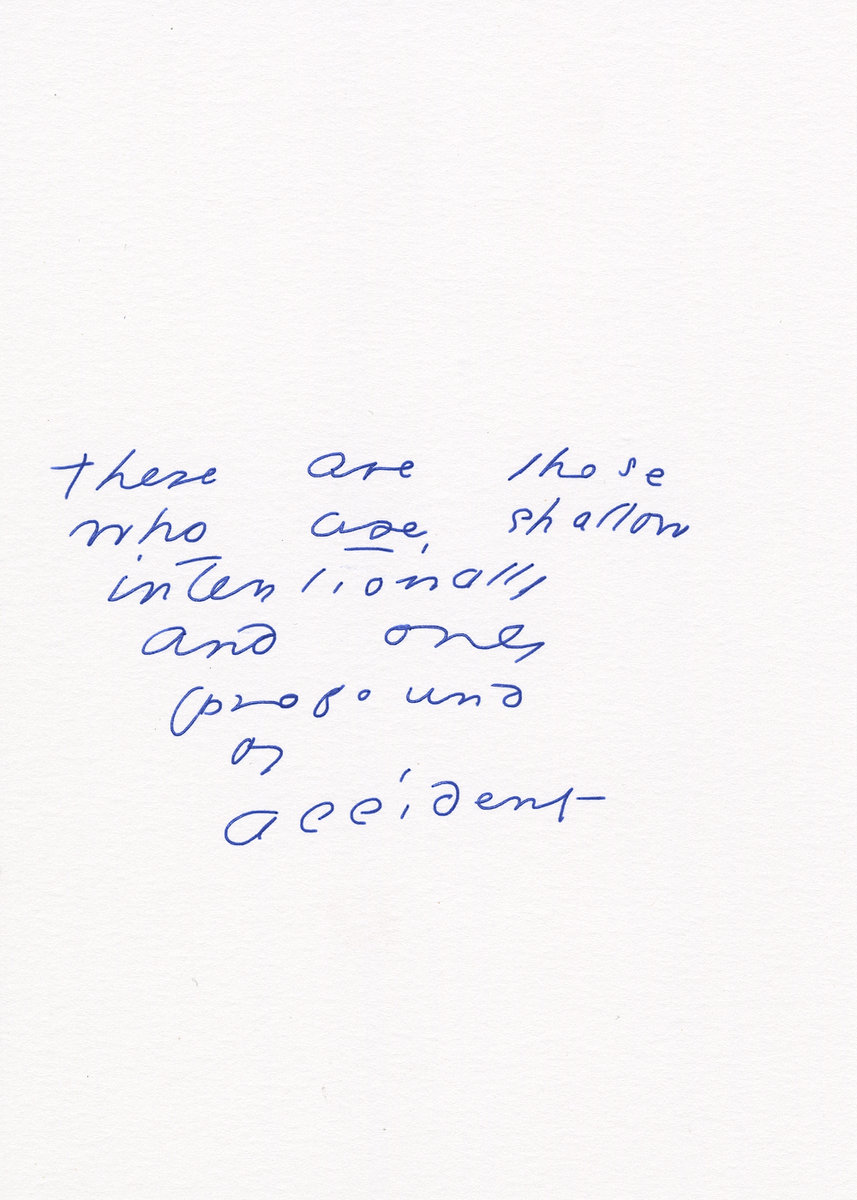 there are those
who are shallow
intentionally
and only
profound
by
accident